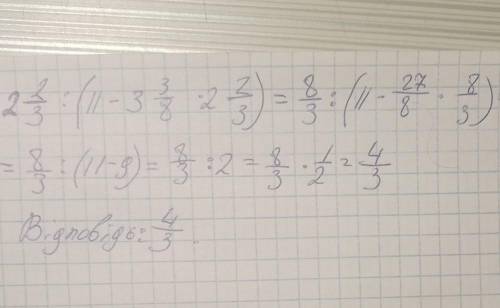 2 2/3 : (11 - 3 3/8 · 2 2/3) = 8/3 : (11 - 27/8 · 8/3)
= 8/3 : (11-9) = 8/3 : 2 = 8/3 · 1/2 = 4/3
Відповідь: 4/3.